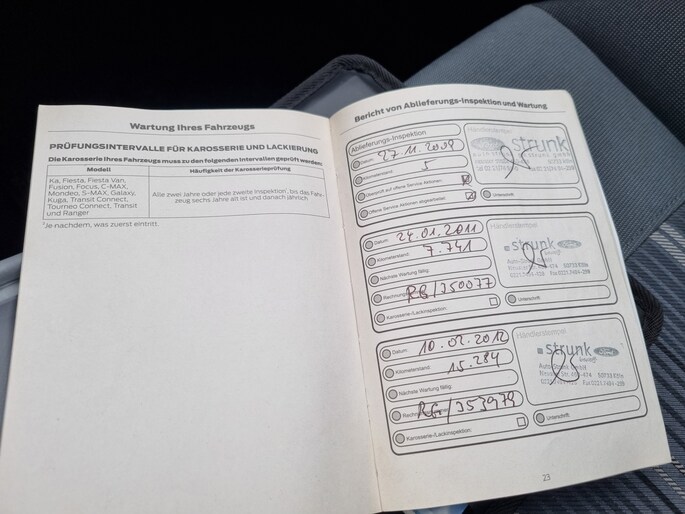 Wartung Ihres Fahrzeugs
PRÜFUNGSINTERVALLE FÜR KAROSSERIE UND LACKIERUNG
Die Karosserie Ihres Fahrzeugs muss zu den folgenden Intervallen geprüft werden:
Modell Häufigkeit der Karosserieprüfung
Ka, Fiesta, Fiesta Van,
Fusion, Focus, C-MAX,
Mondeo, S-MAX, Galaxy,
Kuga, Transit Connect,
Tourneo Connect, Transit
und Ranger
Alle zwei Jahre oder jede zweite Inspektion, bis das Fahr-
zeug sechs Jahre alt ist und danach jährlich
Je nachdem, was zuerst eintritt.
Bericht von Ablieferungs-Inspektion und Wartung
Ablieferungs-Inspektion
Datum: 27.11.2009
Kilometerstand: 5
Überprüft auf offene Service Aktionen:
Offene Service Aktionen abgearbeitet:
Händlerstempel
strunk
Unterschrift:
Datum: 24.01.2011
Kilometerstand: 7.741
Nächste Wartung fällig:
Karosserie-/Lackinspektion:
Händlerstempel
strunk Ford
Unterschrift:
Datum: 10.02.2012
Kilometerstand: 15.284
Nächste Wartung fällig:
Karosserie-/Lackinspektion:
Händlerstempel
strunk Ford
Unterschrift:
23